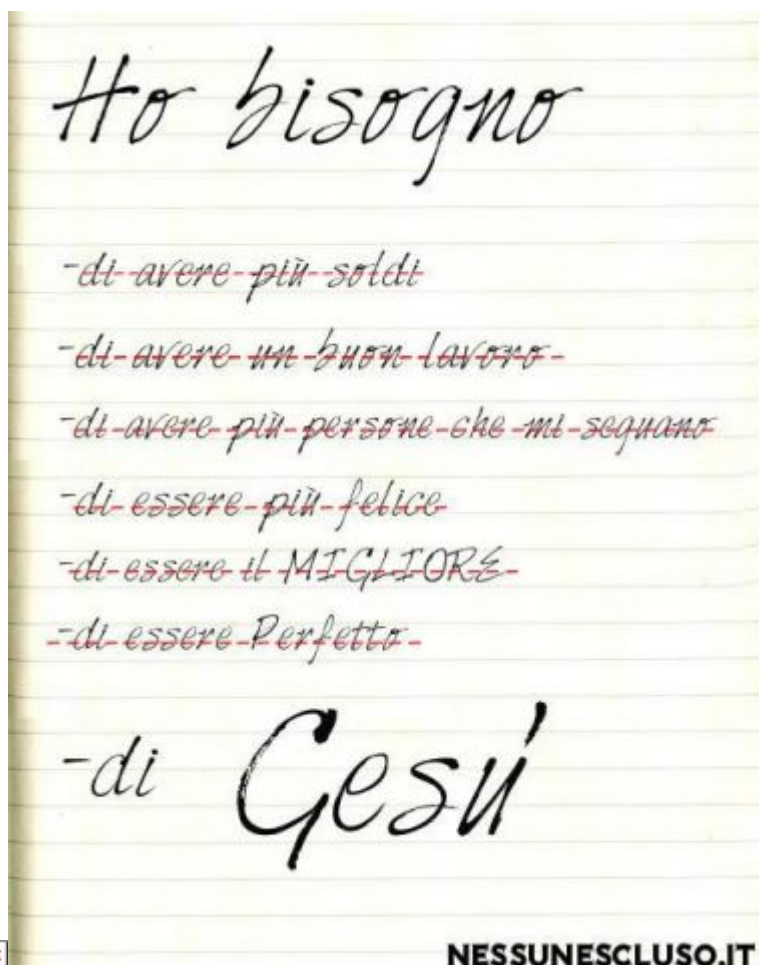 Ho bisogno
-di avere più soldi
-di avere un buon lavoro
-di avere più persone che mi seguano
-di essere più felice
-di essere il MIGLIORE
-di essere Perfetto
-di Gesú
NESSUNESCLUSO.IT